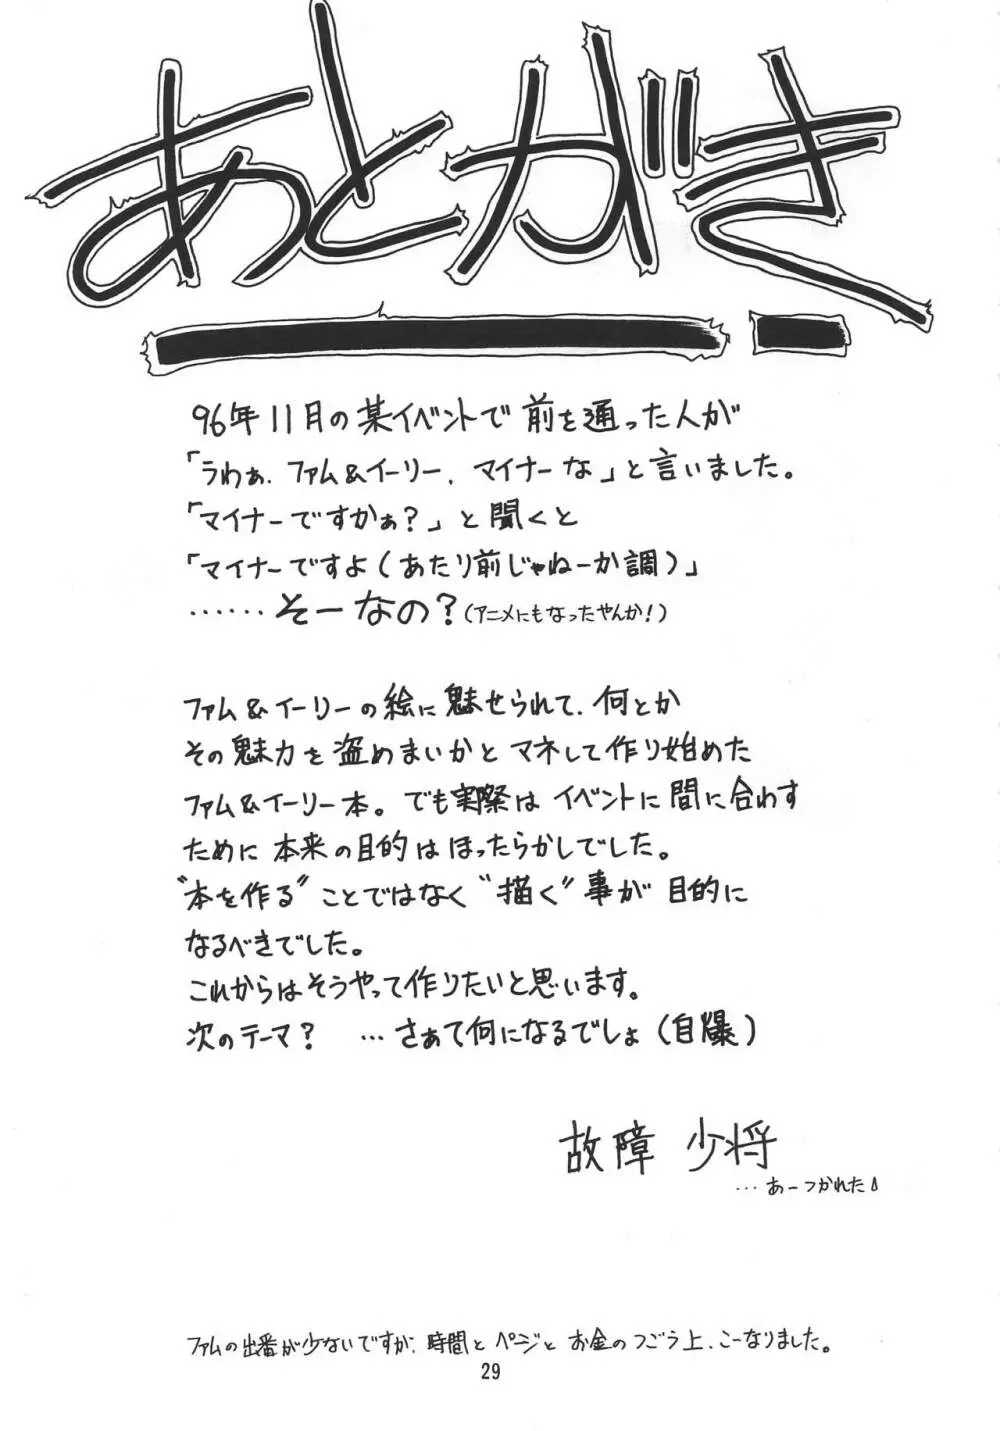 あとがき
96年11月の某イベントで前を通った人が
「うわぁ、ファム&イーリー、マイナーな」と言いました。
「マイナーですかぁ?」と聞くと
「マイナーですよ(あたり前じゃねーか調)」
……そーなの?(アニメにもなったやんか!)
ファム&イーリーの絵に魅せられて、何とか
その魅力を盗めまいかとマネして作り始めた
ファム&イーリー本。でも実際はイベントに間に合わす
ために本来の目的はほったらかしでした。
“本を作る”ことではなく“描く”事が目的に
なるべきでした。
これからはそうやって作りたいと思います。
次のテーマ? …さぁて何になるでしょ(自爆)
故障 少将
…あーつかれた
ファムの出番が少ないですが、時間とページとお金のつごう上、こーなりました。
29